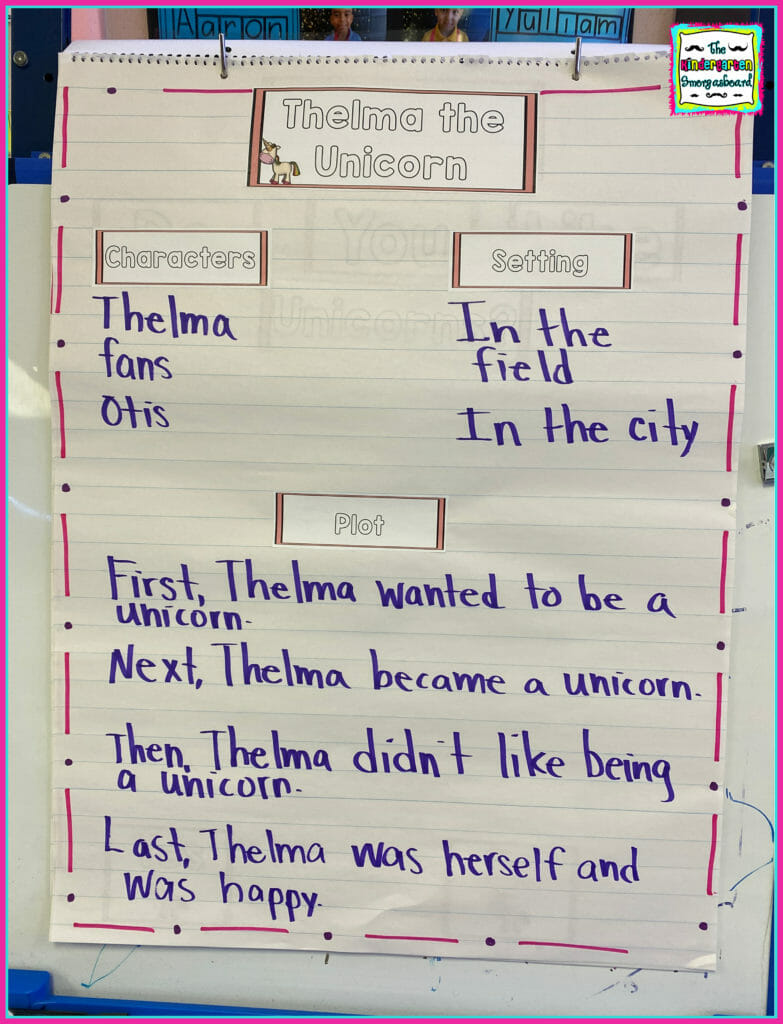 Aaron
Yuliam
The
Kindergarten
Smorgasboard
Thelma the
Unicorn
Characters
Setting
Thelma
fans
Otis
In the
field
In the city
Plot
First, Thelma wanted to be a
unicorn.
Next, Thelma became a unicorn.
Then, Thelma didn't like being
a unicorn.
Last, Thelma was herself and
was happy.
You Like
Unicorns?